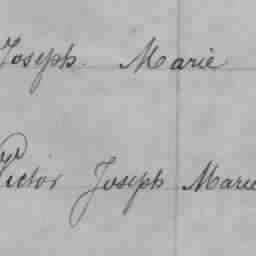 Joseph Marie
Victor Joseph Marie